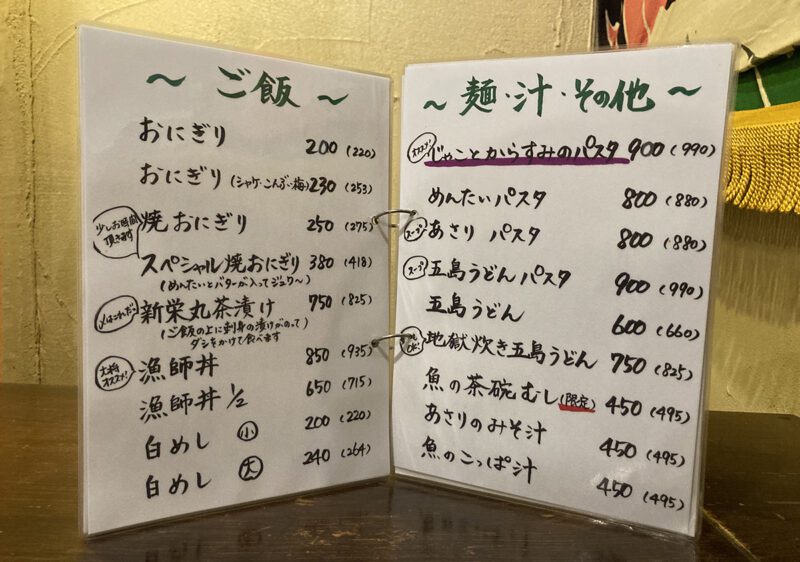 ～ ご飯 ～
おにぎり 200 (220)
おにぎり (シャケ・こんぶ・梅) 230 (253)
少しお時間
頂きます
焼おにぎり 250 (275)
スペシャル焼おにぎり 380 (418)
(めんたいとバターが入ってジュワ～)
〆はこれだっ
新栄丸茶漬け 750 (825)
(ご飯の上に刺身の漬けがのって)
ダシをかけて食べます
大将
オススメ!
漁師丼 850 (935)
漁師丼 1/2 650 (715)
白めし 小 200 (220)
白めし 大 240 (264)
～ 麺・汁・その他 ～
オススメ!
じゃことからすみのパスタ 900 (990)
めんたいパスタ 800 (880)
スープ
あさり パスタ 800 (880)
スープ
五島うどんパスタ 900 (990)
五島うどん 600 (660)
OK!
地獄炊き五島うどん 750 (825)
魚の茶碗むし (限定) 450 (495)
あさりのみそ汁 450 (495)
魚のこっぱ汁 450 (495)